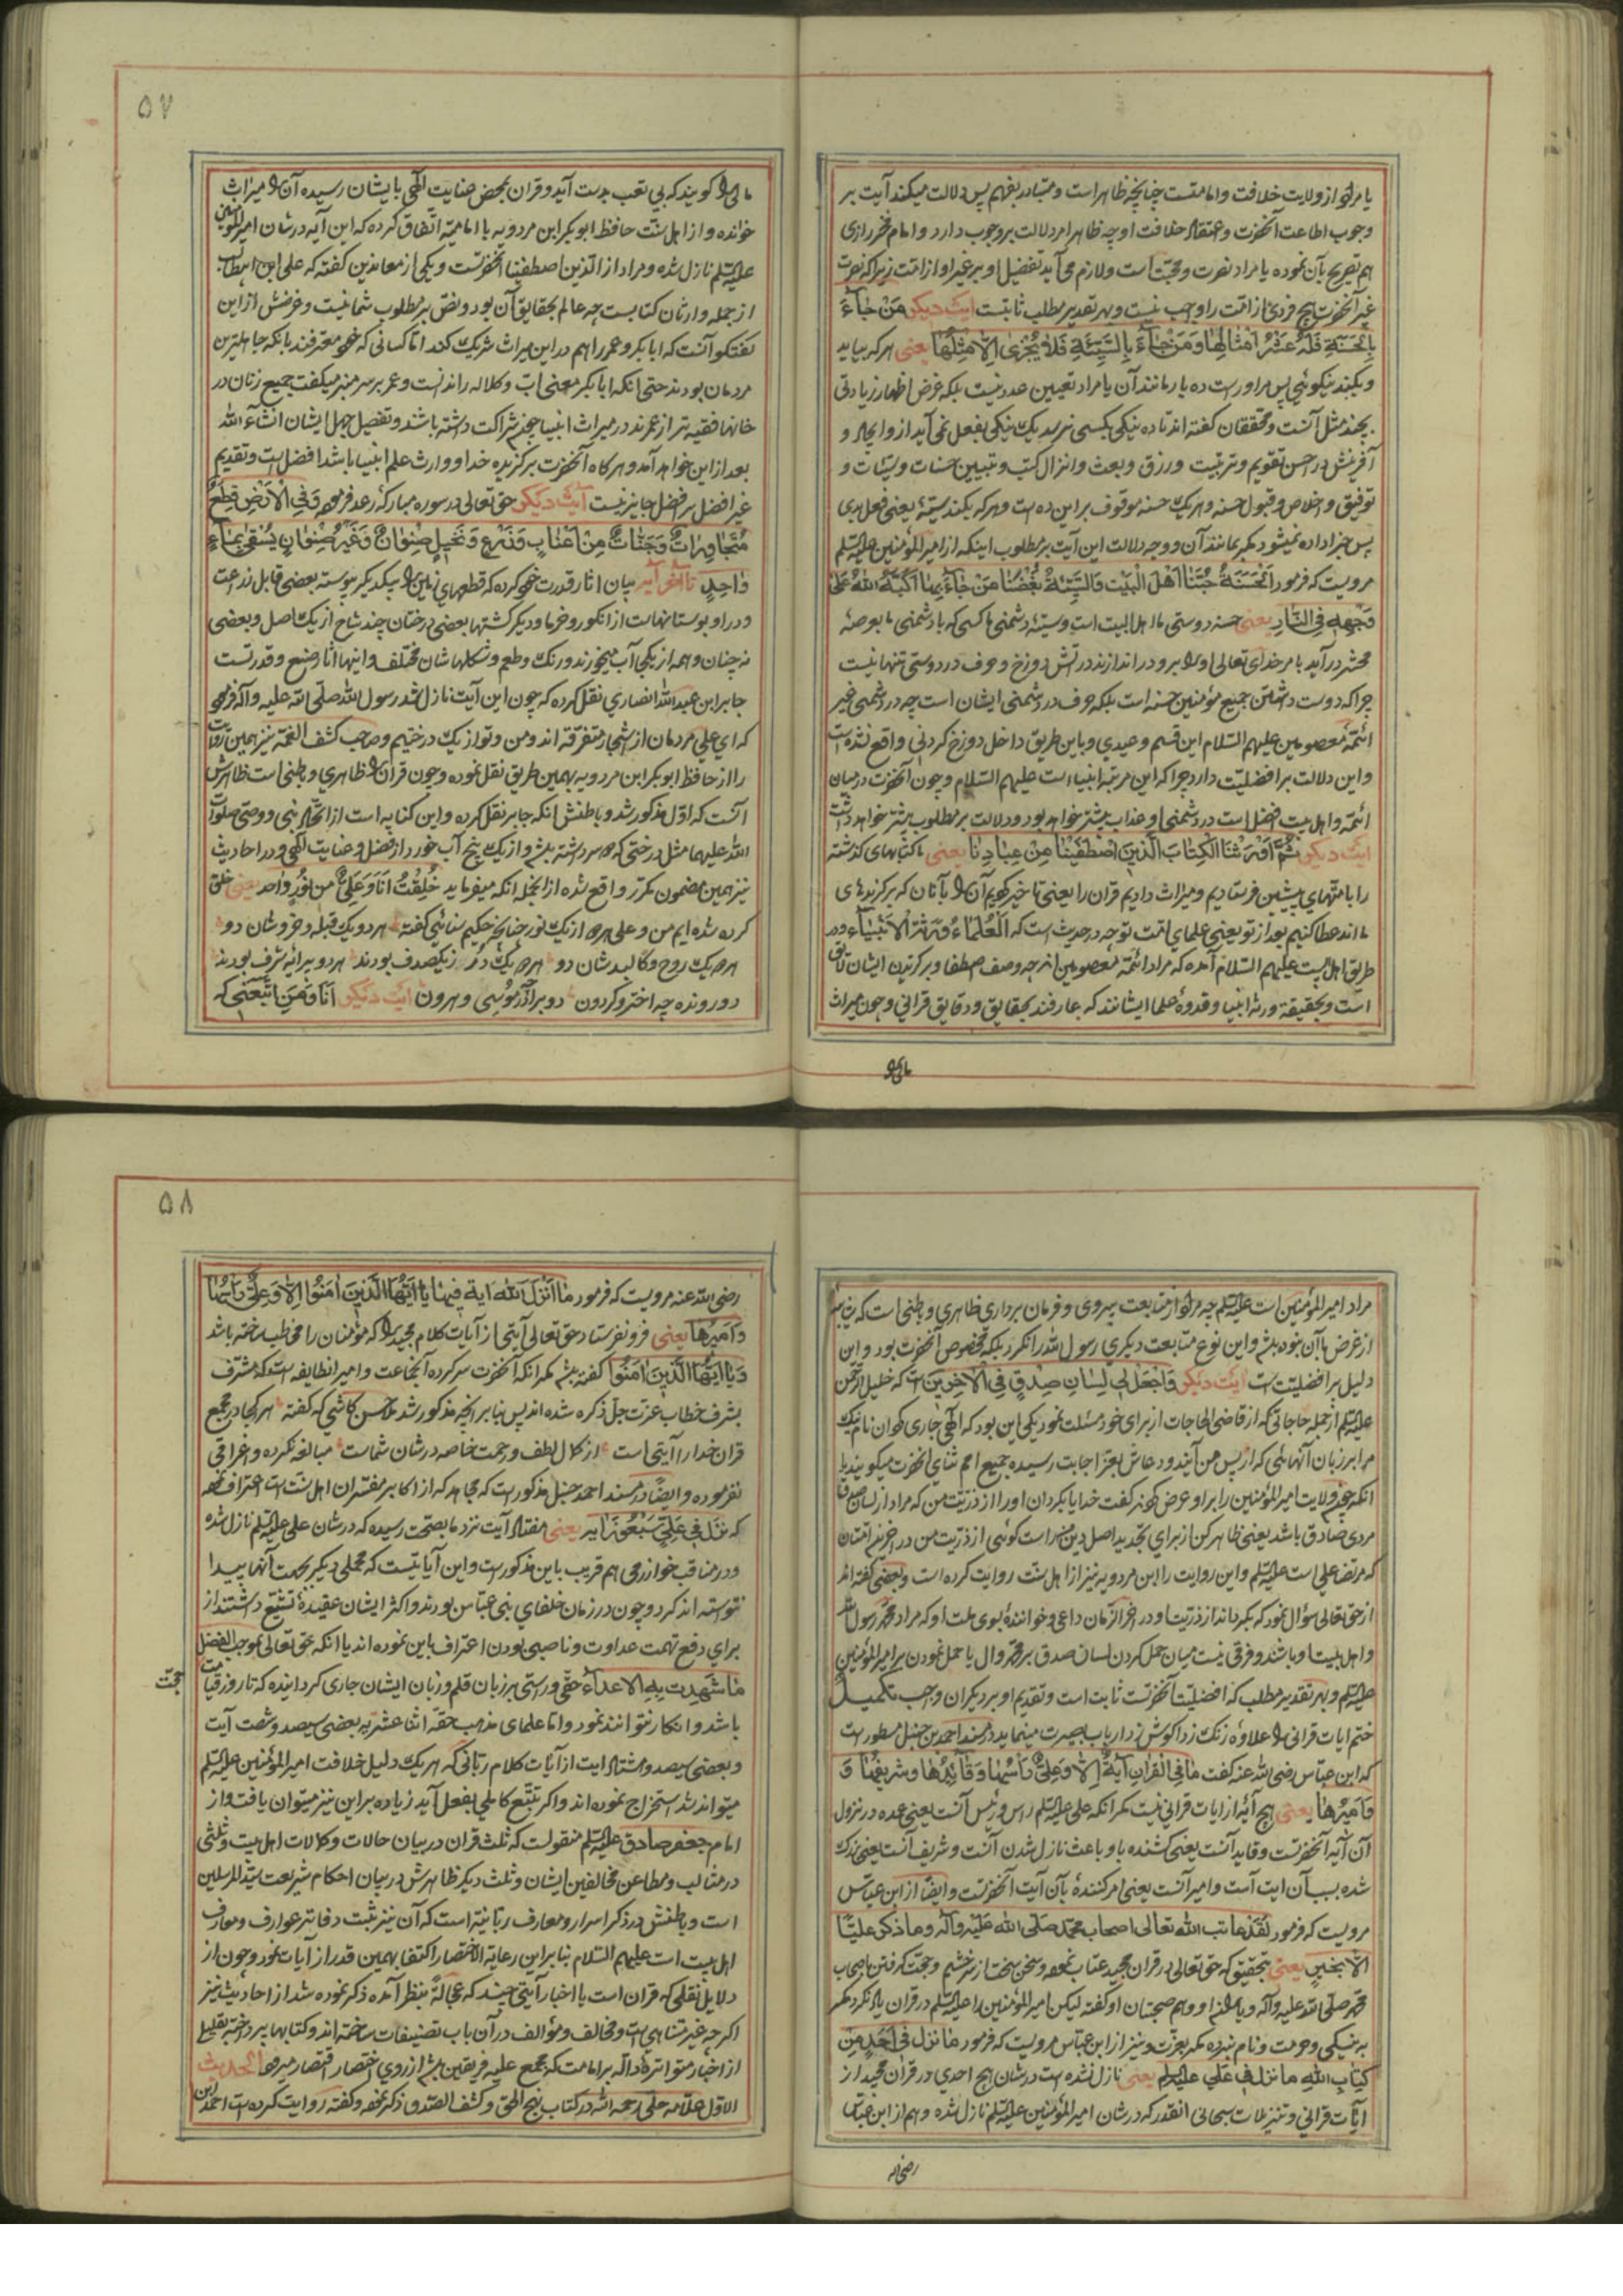 یا مراد از ولایت خلافت و امامتست چنانچه ظاهر است و متبادر بفهم پس دلالت میکند آیت بر
وجوب اطاعت آنحضرت و اعتقاد خلافت او چه ظاهر امر دلالت بر وجوب دارد و امام فخر رازی
هم تصریح بآن نموده یا مراد نصرت و محبتست و لازم می آید تفضیل او بر غیر او از امت زیرا که نصرت
غیر آنحضرت هیچ فردی از امت را واجب نیست و بهر تقدیر مطلب ثابتست آیت دیکر مَنْ جٰاءَ
بِالْحَسَنَةِ فَلَهُ عَشْرُ اَمْثٰالِهٰا وَمَنْ جٰاءَ بِالسَّيِّئَةِ فَلاٰ يُجْزىٰ اِلاّٰ مِثْلَهٰا یعنی هر که بیاید
و بکند نیکوئی پس مر او راست ده بار مانند آن یا مراد تعیین عدد نیست بلکه غرض اظهار زیادتی
بچند مثل آنست و محققان کفته اند تا ده نیکی بکسی نرسد یک نیکی بفعل نمی آید از و ایجاد و
آفرینش در احسن تقویم و تربیت و رزق و بعث و انزال کتب و تبیین حسنات و سیئات و
توفیق و اخلاص و قبول حسنه و هر یک حسنه موقوف بر این ده است و هر که بکند سیئه یعنی فعل بدی
پس جزا داده نمیشود مکر بمانند آن و وجه دلالت این آیت بر مطلوب اینکه از امیر المؤمنین علیه السلم
مرویست که فرمود اَلْحَسَنَةُ حُبُّنٰا اَهْلَ الْبَيْتِ وَالسَّيِّئَةُ بُغْضُنٰا مَنْ جٰاءَ بِهٰا اَكَبَّهُ اللّٰهُ عَلىٰ
وَجْهِهِ فِى النّٰارِ یعنی حسنه دوستی ما اهل البیت است و سیئه دشمنی ما کسی که با دشمنی ما بعرصهٔ
محشر در آید بامر خدای تعالی او را برو در اندازند در آتش دوزخ و حرف در دوستی تنها نیست
چرا که دوست داشتن جمیع مؤمنین حسنه است بلکه حرف در دشمنی ایشان است چه در دشمنی غیر
ائمهٔ معصومین علیهم السلام این قسم وعیدی و باین طریق داخل دوزخ کردنی واقع نشده است
و این دلالت بر افضلیت دارد چرا که این مرتبه انبیاء است علیهم السلام و چون آنحضرت درمیان
ائمه و اهل بیت افضل است در دشمنی او عذاب بیشتر خواهد بود و دلالت بر مطلوب بیشتر خواهد داشت
آیت دیکر ثُمَّ اَوْرَثْنَا الْكِتٰابَ الَّذينَ اصْطَفَيْنٰا مِنْ عِبٰادِنٰا یعنی ما کتابهای کذشته
را بامتهای پیشین فرستادیم و میراث دادیم قران را یعنی تاخیر کردیم آن را بآنان که برکزیده ی
ما اند عطا کنیم بعد از تو یعنی علمای امت تو چه در حدیث است که اَلْعُلَمٰاءُ وَرَثَةُ الاَنْبِيٰاءِ و در
طریق اهل بیت علیهم السلام آمده که مراد ائمهٔ معصومین اند چه وصف اصطفا و برکزیدن ایشان لایق
است و بحقیقة ورثهٔ انبیا و قدوهٔ علما ایشانند که عارفند بحقایق و دقایق قرانی و چون میراث
مالی را
۵۷
مالی را کویند که بی تعب بدست آید و قران بمحض عنایت الهی بایشان رسیده آن را میراث
خوانده و از اهل سنت حافظ ابوبکر ابن مردویه با امامیه اتفاق کرده که این آیه در شان امیر المؤمنین
علیه السلم نازل شده و مراد از الذین اصطفینا آنحضرتست و یکی از معاندین کفته که علی ابن ابیطالب
از جمله وارثان کتابست چه عالم بحقایق آن بود و نص بر مطلوب شما نیست و غرضش از این
کفتکو آنست که ابابکر و عمر را هم در این میراث شریک کند اما کسانی که خود معترفند بانکه جاهلترین
مردمان بودند حتی انکه ابابکر معنی اب و کلاله را ندانست و عمر بر سر منبر میکفت جمیع زنان در
خانها فقیه تر از عمرند در میراث انبیا چه نحو شراکت داشته باشند و تفصیل جهل ایشان انشاء الله
بعد از این خواهد آمد و هرکاه آنحضرت برکزیده خدا و وارث علم انبیا باشد افضل است و تقدیم
غیر افضل بر افضل جایز نیست آیت دیکر حق تعالی در سوره مبارکهٔ رعد فرموده وَفِى الْاَرْضِ قِطَعٌ
مُتَجٰاوِرٰاتٌ وَجَنّٰاتٌ مِنْ اَعْنٰابٍ وَزَرْعٍ وَنَخيلٍ صِنْوٰانٌ وَغَيْرُ صِنْوٰانٍ يُسْقىٰ بِمٰاءٍ
وٰاحِدٍ تا آخر آیه بیان اثار قدرت خود کرده که قطعهای زمین را بیکدیکر پیوسته بعضی قابل زراعت
و در او بوستانهاست از انکور و خرما و دیکر کشتها بعضی درختان چند شاخ از یک اصل و بعضی
نه چنان و همه از یکی آب میخورند و رنک و طعم و شکلهاشان مختلف و اینها اثار صنع و قدرتست
جابر ابن عبدالله انصاری نقل کرده که چون این آیت نازل شد رسول الله صلی الله علیه و آله فرمود
که ای علی مردمان از اشجار متفرقه اند و من و تو از یک درختیم و صاحب کشف الغمه نیز همین روایت
را از حافظ ابوبکر ابن مردویه بهمین طریق نقل نموده و چون قران را ظاهری و باطنی است ظاهرش
آنست که اول مذکور شد و باطنش انکه جابر نقل کرده و این کنایه است از اتحاد نبی و وصی صلوات
الله علیهما مثل درختی که دو سر داشته باشد و از یک بیخ آب خورد از فضل و عنایت الهی و در احادیث
نیز همین مضمون مکرر واقع شده از انجمله انکه میفرماید خُلِقْتُ اَنَا وَعَلِيٌّ مِنْ نُورٍ وٰاحِدٍ یعنی خلق
کرده شده ایم من و علی هر دو از یک نور چنانچه حکیم سنائی کفته هر دو یک قبله و خردشان دو
هر دو یک روح و کالبدشان دو هر دو یک دُر ز یکصدف بودند هر دو پیرایه شرف بودند
دو رونده چه اختر و کردون دو برادر چو موسی و هرون آیت دیکر اَنَا وَمَنِ اتَّبَعَنى که
مراد امیر المؤمنین است علیه السلم چه مراد از متابعت پیروی و فرمان برداری ظاهری و باطنی است که شایبه
از غرض با آن نبوده باشد و این نوع متابعت دیکری رسول الله را نکرد بلکه مخصوص آنحضرت بود و این
دلیل بر افضلیتست آیت دیکر وَاجْعَلْ لى لِسٰانَ صِدْقٍ فِى الْاٰخِرينَ است که خلیل الرحمن
علیه السلم از جمله حاجاتی که از قاضی الحاجات از برای خود مسئلت نمود یکی این بود که الهی جاری کردان نام نیک
مرا بر زبان آنهائی که از پس من آیند و دعاش بعز اجابت رسیده جمیع امم ثنای آنحضرت میکویند یا
انکه چون ولایت امیر المؤمنین را بر او عرض کردند کفت خدایا بکردان او را از ذریت من که مراد از لسان صدق
مردی صادق باشد یعنی ظاهر کن از برای تجدید اصل دین من راست کوئی از ذریت من در آخر زمان
که مرتضا علی است علیه السلم و این روایت را ابن مردویه نیز از اهل سنت روایت کرده است و بعضی کفته اند
از حق تعالی سؤال نمود که بکرداند از ذریت او در آخر الزمان داعی و خوانندهٔ بسوی ملت او که مراد محمد رسول الله
و اهل بیت او باشند و فرقی نیست میان حمل کردن لسان صدق بر محمد و ال یا حمل نمودن بر امیر المؤمنین
علیه السلم و بهر تقدیر مطلب که افضلیت آنحضرتست ثابت است و تقدیم او بر دیکران واجب تکمیل
ختم ایات قرانی را علاوه زنک زدا کوش زد ارباب بصیرت مینماید در مسند احمد بن حنبل مسطور است
که ابن عباس رضی الله عنه کفت مٰا فِى الْقُرٰانِ اٰيَةٌ اِلاّٰ وَعَلِيٌّ رَاْسُهٰا وَقٰائِدُهٰا وَشَريفُهٰا وَ
وَاَميرُهٰا یعنی هیچ آیهٔ از ایات قرانی نیست مکر انکه علی علیه السلم راس و رئیس آنست یعنی عمده در نزول
آن آیه آنحضرتست و قاید آنست یعنی کشنده باو باعث نازل شدن آنست و شریف آنست یعنی بزرک
شده بسبب آن ایت است و امیر آنست یعنی امر کنندهٔ بآن آیت آنحضرتست و ایضا از ابن عباس
مرویست که فرمود لَقَدْ عٰاتَبَ اللّٰهُ تعالی اصحاب محمد صلی الله علیه وآله وما ذکر علیًّا
اِلاّٰ بِخَيْرٍ یعنی بتحقیق که حق تعالی در قران مجید عتاب نموده و سخن سخت از سر خشم و حجت کرفتن باصحاب
محمد صلی الله علیه وآله و هم صحبتان او کفته لیکن امیر المؤمنین را علیه السلم در قران یاد نکرد مکر
به نیکی و حرمت و نام نبرده مکر بعزت و نیز از ابن عباس مرویست که فرمود مٰا نَزَلَ فى اَحَدٍ مِنْ
كِتٰابِ اللّٰهِ مٰا نَزَلَ فى عَلِيٍّ علیه السلم یعنی نازل نشده است در شان هیچ احدی در قران مجید از
آیات قرانی و تنزیلات سبحانی انقدر که در شان امیر المؤمنین علیه السلم نازل شده و هم از ابن عباس
رضی الله
۵۸
رضی الله عنه مرویست که فرمود مٰا اَنْزَلَ اللّٰهُ اٰيَةً فيهٰا يٰا اَيُّهَا الَّذينَ اٰمَنُوا اِلاّٰ وَعَلِيٌّ رَاْسُهٰا
وَاَميرُهٰا یعنی فرو نفرستاد حق تعالی آیتی از آیات کلام مجید را که مؤمنان را مخاطب ساخته باشد
وَيٰا اَيُّهَا الَّذينَ اٰمَنُوا کفته باشد مکر انکه آنحضرت سرکردهٔ آنجماعت و امیر انطایفه است که مشرف
بشرف خطاب عزت جل ذکره شده اند پس بنابر انچه مذکور شد ملا حسن کاشی که کفته هر کجا در مجمع
قران خدا را آیتی است از کمال لطف و رحمت خاصه در شان شماست مبالغه نکرده و اغراقی
نفرموده و ایضا در مسند احمد حنبل مذکور است که مجاهد که از اکابر مفسران اهل سنت است اعتراف نموده
که نَزَلَ فى عَلِيٍّ سَبْعُونَ اٰيَة یعنی هفتاد آیت نزد ما بصحت رسیده که در شان علی علیه السلم نازل شده
و در مناقب خوارزمی هم قریب باین مذکور است و این آیاتیست که محملی دیکر بجهت آنها پیدا
نتوانسته اند کرد و چون در زمان خلفای بنی عباس بودند و اکثر ایشان عقیدهٔ تشیع داشتند از
برای دفع تهمت عداوت و ناصبی بودن اعتراف باین نموده اند یا انکه حق تعالی بموجب الفضل
مٰا شَهِدَتْ بِهِ الاَعْدٰاءُ حقی و راستی بر زبان قلم و زبان ایشان جاری کردانیده که تا روز قیامت
حجت
باشد و انکار نتوانند نمود و اما علمای مذهب حقه اثنا عشریه بعضی سیصد و شصت آیت
و بعضی سیصد و هشتاد ایت از آیات کلام ربانی که هر یک دلیل خلافت امیر المؤمنین علیه السلم
میتواند شد استخراج نموده اند و اکر تتبع کاملی بفعل آید زیاده بر این نیز میتوان یافت و از
امام جعفر صادق علیه السلم منقولست که ثلث قران در بیان حالات و کمالات اهل بیت و ثلثی
در مثالب و مطاعن مخالفین ایشان و ثلث دیکر ظاهرش در بیان احکام شریعت سید المرسلین
است و باطنش در ذکر اسرار و معارف ربانیه است که آن نیز ثبت دفاتر عوارف و معارف
اهل بیت است علیهم السلام بنابراین رعایة الاختصار اکتفا بهمین قدر از آیات نمود و چون از
دلایل نقلی که قران است با اخبار آیتی چند که عجالةً بنظر آمده ذکر نموده شد از احادیث نیز
اکرچه غیر متناهی است و مخالف و مؤالف در آن باب تصنیفات ساخته اند و کتابها پرداخته بقلیل
از اخبار متواتره داله بر امامت که مجمع علیه فریقین باشد از روی اختصار اقتصار میرود الحدیث
الاول علامه حلی رحمه الله در کتاب نهج الحق و کشف الصدق ذکر نموده و کفته روایت کرده است احمد ابن